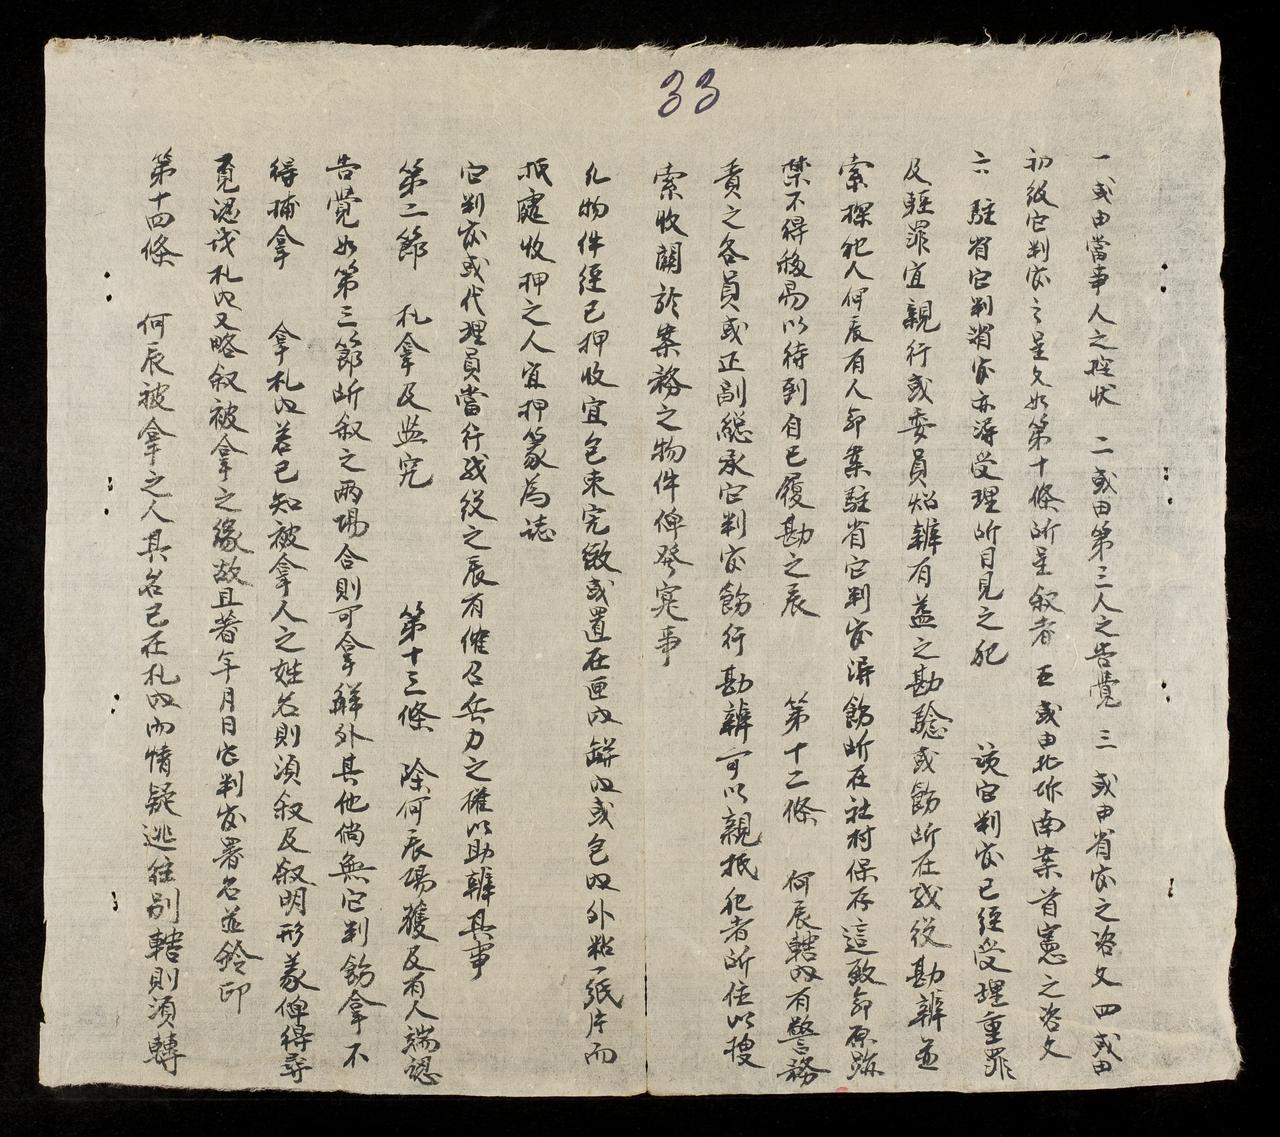 33
一或由當事人之控状 二或由第三人之告覺 三或由省官之咨文 四或由
初級它判官之呈文如第十條所呈叙者 五或由北圻南案首憲之咨文
六 駐省它判消官亦淂受理所目見之犯 該它判官已經受理重罪
及輕罪宜親行或委員炤辨有益之勘騐或飭所在戓役勘辨並
索探犯人何辰有人命案駐省它判官淂飭所在社村保存這致命原跡
禁不得移易以待到自己履勘之辰 第十二條 何辰轄内有警務
責之各員或正副總承它判官飭行勘辨可以親抵犯者所住以搜
索收關於案務之物件俾發寃事
凡物件經已押收宜包束完繳或置在匣内缾内或包内外粘一紙片而
抵處收押之人宜押篆為誌
它判官或代理員當行戓役之辰有催召兵力之權以助辦其事
第二節 札拿及监究 第十三條 除何辰場獲及有人端認
告覺如第三節所叙之兩場合則可拿觧外其他倘無它判飭拿不
得捕拿 拿札内若已知被拿人之姓名則須叙及叙明形䔇俾得尋
覓認戓札内又略叙被拿之緣故且著年月日它判官署名並鈐印
第十四條 何辰被拿之人其名已在札内而情疑逃往别轄則須轉